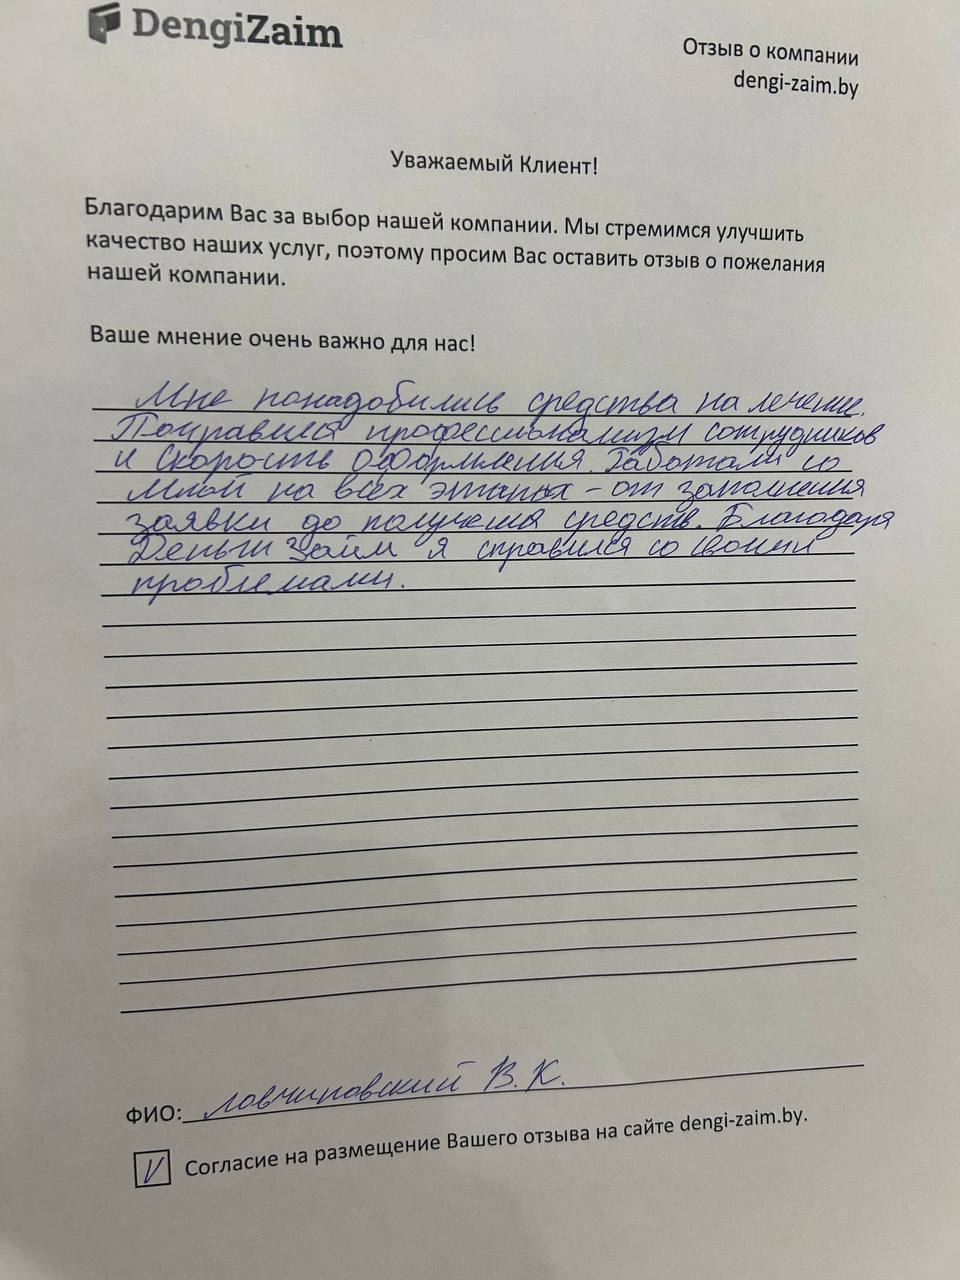 DengiZaim
Отзыв о компании
dengi-zaim.by
Уважаемый Клиент!
Благодарим Вас за выбор нашей компании. Мы стремимся улучшить
качество наших услуг, поэтому просим Вас оставить отзыв о пожелания
нашей компании.
Ваше мнение очень важно для нас!
Мне понадобились средства на лечение.
Понравился профессионализм сотрудников
и скорость оформления. Работали со
мной на всех этапах - от заполнения
заявки до получения средств. Благодаря
Деньги Займ я справился со своими
проблемами.
ФИО: Ловчиновский В. К.
V Согласие на размещение Вашего отзыва на сайте dengi-zaim.by.